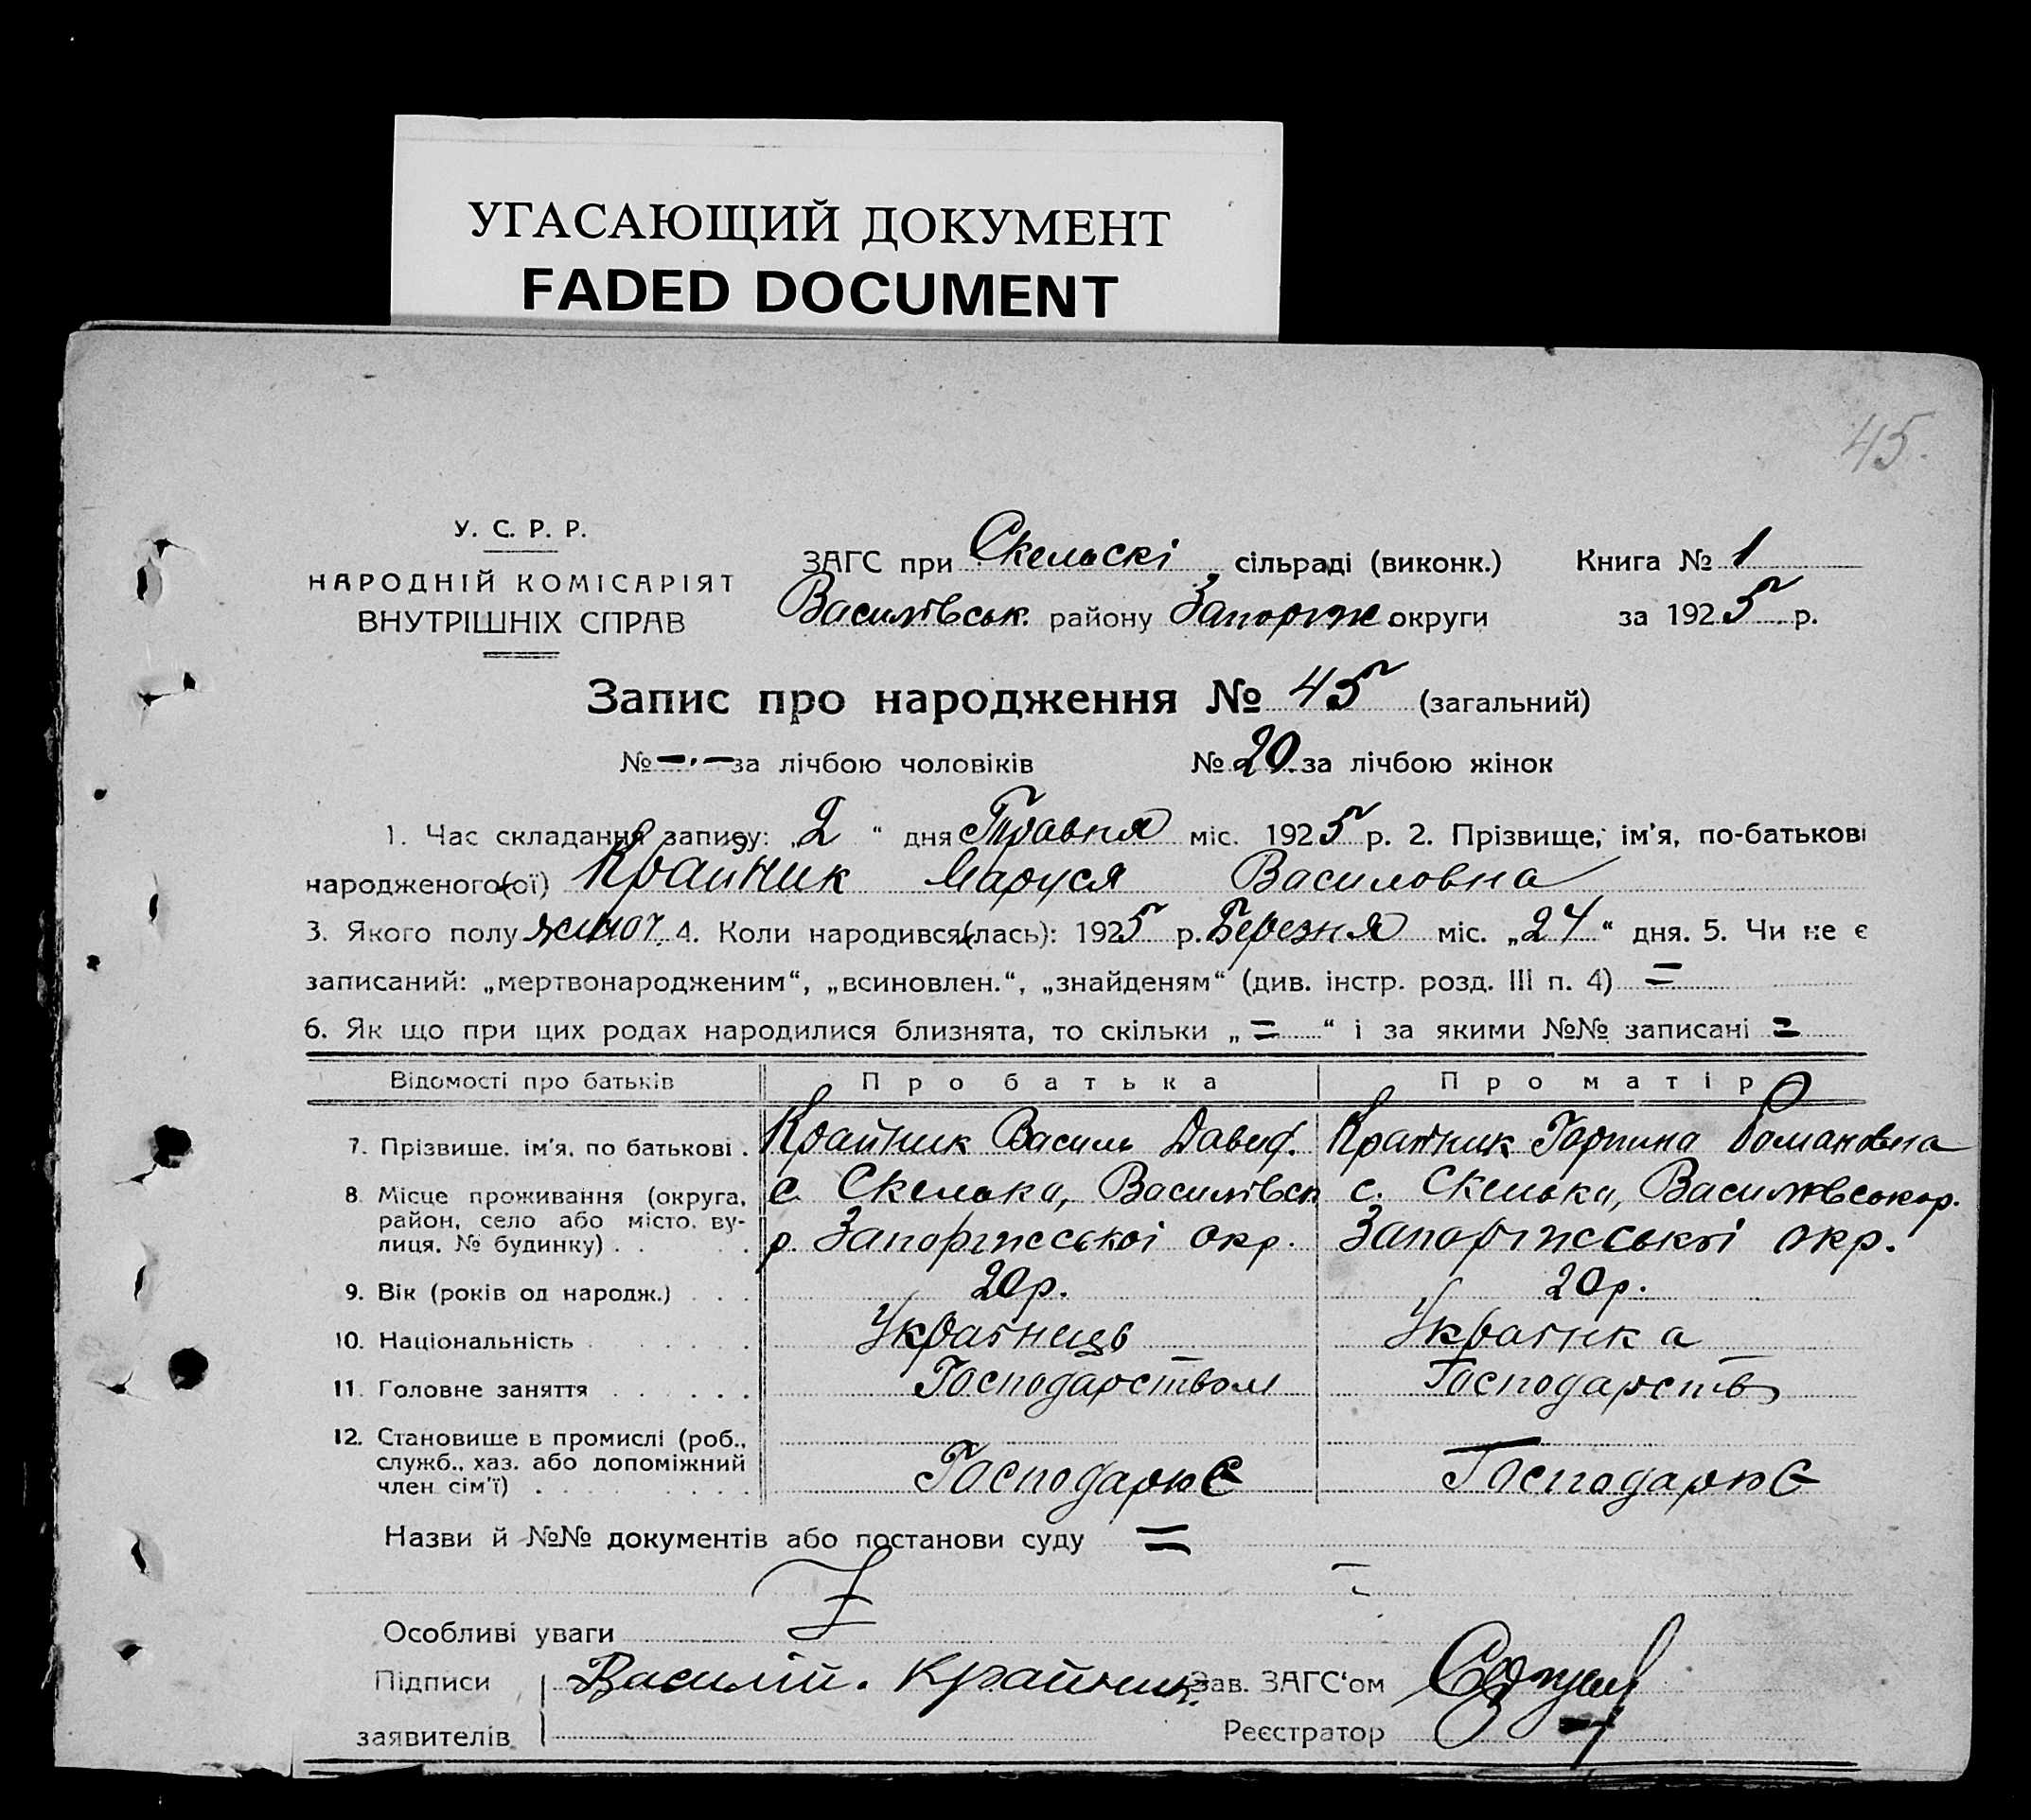 УГАСАЮЩИЙ ДОКУМЕНТ
FADED DOCUMENT
45.
У. С. Р. Р.
НАРОДНІЙ КОМІСАРІЯТ
ВНУТРІШНІХ СПРАВ
ЗАГС при Скельскі сільраді (виконк.) Книга № 1
Василівськ. району Запоріж. округи за 1925 р.
Запис про народження № 45 (загальний)
№ — . — за лічбою чоловіків № 20. за лічбою жінок
1. Час складання запису: „2“ дня Травня міс. 1925 р. 2. Прізвище, ім'я, по-батькові
народженого(ої) Крайник Маруся Василовна
3. Якого полу жіноч. 4. Коли народився(лась): 1925 р. Березня міс. „24“ дня. 5. Чи не є
записаний: „мертвонародженим“, „всиновлен.“, „знайденям“ (див. інстр. розд. III п. 4) =
6. Як що при цих родах народилися близнята, то скільки „=“ і за якими №№ записані =
Відомості про батьків Про батька Про матір
7. Прізвище, ім'я, по батькові . Крайник Василь Давид. Крайник Горпина Романовна
8. Місце проживання (округа, район, село або місто, ву-лиця, № будинку) . . с. Скелька, Василівськ с. Скелька, Василівськ р.
р. Запоріжської окр. Запоріжської окр.
9. Вік (років од народж.) . . . 20 р. 20 р.
10. Національність Українець Українка
11. Головне заняття . . . . . . Господарством Господарств
12. Становище в промислі (роб., служб., хаз. або допоміжний член сім'ї) . Господарює Господарює
Назви й №№ документів або постанови суду =
Особливі уваги
Підписи Василій. Крайник. Зав. ЗАГС'ом
заявителів Реєстратор